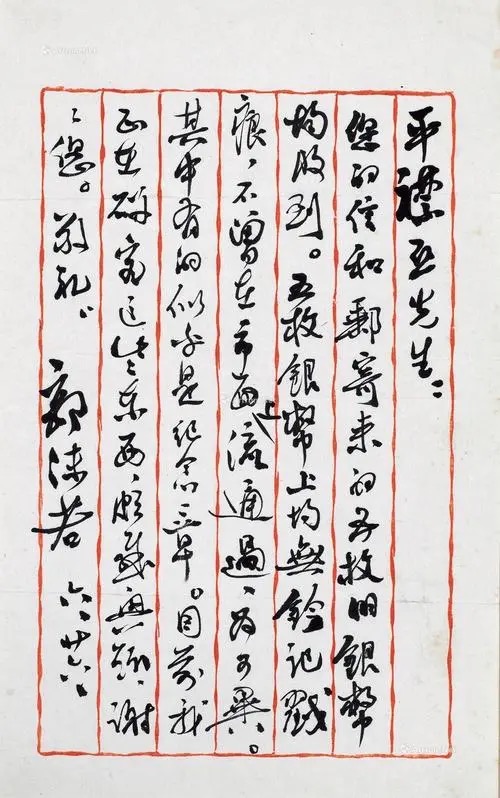 平襟亚先生：
您的信和郵寄来的五枚旧銀幣
均收到。五枚銀幣上均無鈐记戳
痕、不曾在市面上流通過、为可異。
其中有的似乎是纪念章。目前我
正在研究这些东西、颇感興趣、谢
〻您。敬礼、 郭沫若 六、廿六